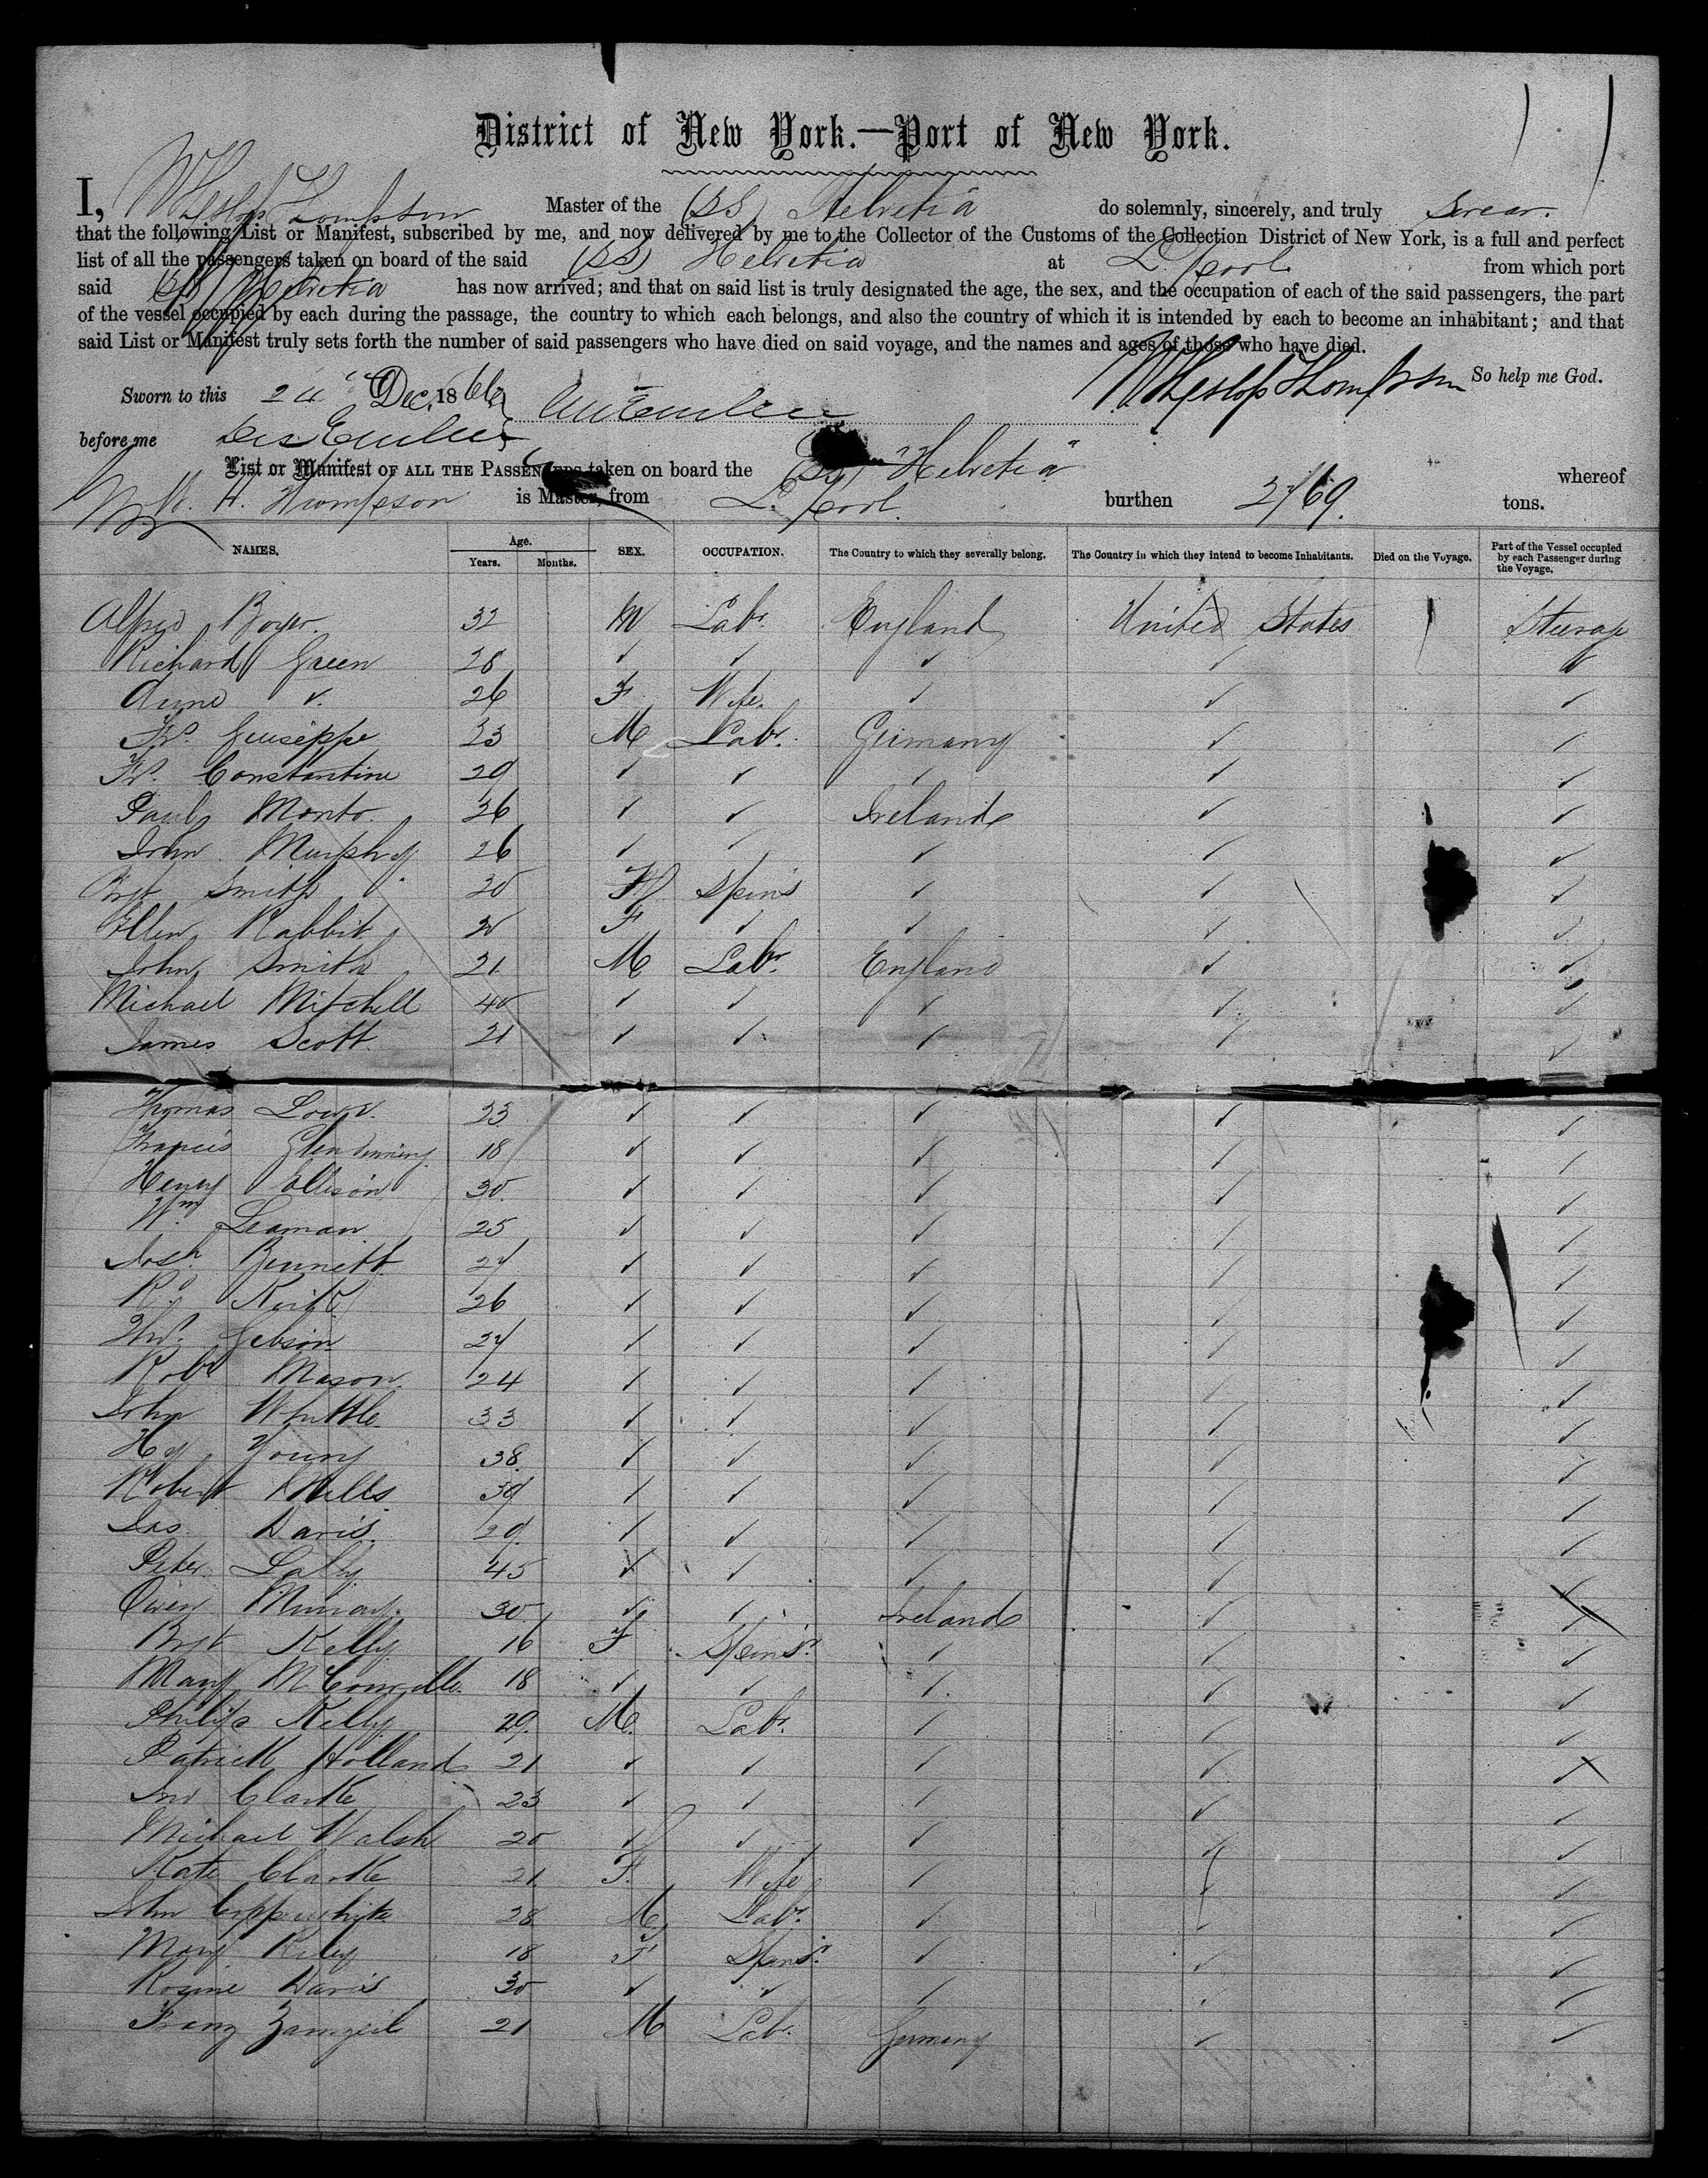 District of New York.—Port of New York.
I, W Heslop Thompson Master of the (SS) Helvetia do solemnly, sincerely, and truly swear.
that the following List or Manifest, subscribed by me, and now delivered by me to the Collector of the Customs of the Collection District of New York, is a full and perfect
list of all the passengers taken on board of the said (SS) Helvetia at L'pool from which port
said (SS) Helvetia has now arrived; and that on said list is truly designated the age, the sex, and the occupation of each of the said passengers, the part
of the vessel occupied by each during the passage, the country to which each belongs, and also the country of which it is intended by each to become an inhabitant; and that
said List or Manifest truly sets forth the number of said passengers who have died on said voyage, and the names and ages of those who have died.
Sworn to this 24th Dec. 1866 W Heslop Thompson So help me God.
before me
List or Manifest OF ALL THE PASSENGERS taken on board the (SS) "Helvetia" whereof
W. H. Thompson is Master, from L'pool burthen 2769. tons.
NAMES. Age. Years. Months. SEX. OCCUPATION. The Country to which they severally belong. The Country in which they intend to become Inhabitants. Died on the Voyage. Part of the Vessel occupied by each Passenger during the Voyage.
Alfred 32 M Labr. England United States Steerage
Richard Green 28 ✓ ✓ ✓ ✓ ✓
Anne ✓ 26 F Wife. ✓ ✓ ✓
Guiseppe 33 M Labr. Germany ✓ ✓
Constantine 29 ✓ ✓ ✓ ✓ ✓
Paul Monto. 26 ✓ ✓ Ireland ✓ ✓
John Murphy 26 ✓ ✓ ✓ ✓ ✓
Brgt Smith 20 F Spins ✓ ✓ ✓
Ellen Rabbit 20 F ✓ ✓ ✓ ✓
John Smith 21 M Labr. England ✓ ✓
Michael Mitchell 40 ✓ ✓ ✓ ✓ ✓
James Scott 21 ✓ ✓ ✓ ✓ ✓
Thomas 23 ✓ ✓ ✓ ✓ ✓
Francis Glendinning 18 ✓ ✓ ✓ ✓ ✓
Henry Ellison 30 ✓ ✓ ✓ ✓ ✓
Wm. Leaman 25 ✓ ✓ ✓ ✓ ✓
Josh. Bennett 27 ✓ ✓ ✓ ✓ ✓
Rd. Keith 26 ✓ ✓ ✓ ✓ ✓
Gibson 27 ✓ ✓ ✓ ✓ ✓
Robt Mason 24 ✓ ✓ ✓ ✓ ✓
John Whittle 33 ✓ ✓ ✓ ✓ ✓
Hy Young 38 ✓ ✓ ✓ ✓ ✓
Robert Mills 39 ✓ ✓ ✓ ✓ ✓
Jas. Davis 29 ✓ ✓ ✓ ✓ ✓
Peter Lally 45 ✓ ✓ ✓ ✓ ✓
Owen Murray. 30 ✓ ✓ Ireland ✓ ✓
Brgt Kelly 16 F Spinsr. ✓ ✓ ✓
Mary McConville 18 ✓ ✓ ✓ ✓ ✓
Philip Kelly 29 M. Labr. ✓ ✓ ✓
Patrick Holland 21 ✓ ✓ ✓ ✓ ✓
Jno Clarke 23 ✓ ✓ ✓ ✓ ✓
Michael Walsh 20 ✓ ✓ ✓ ✓ ✓
Kate Clarke 21 F. Wife ✓ ✓ ✓
John 28 M Labr. ✓ ✓ ✓
Mary Riley 18 F Spinsr. ✓ ✓ ✓
Rosine Davis 30 ✓ ✓ ✓ ✓ ✓
Franz 21 M Labr. Germany ✓ ✓